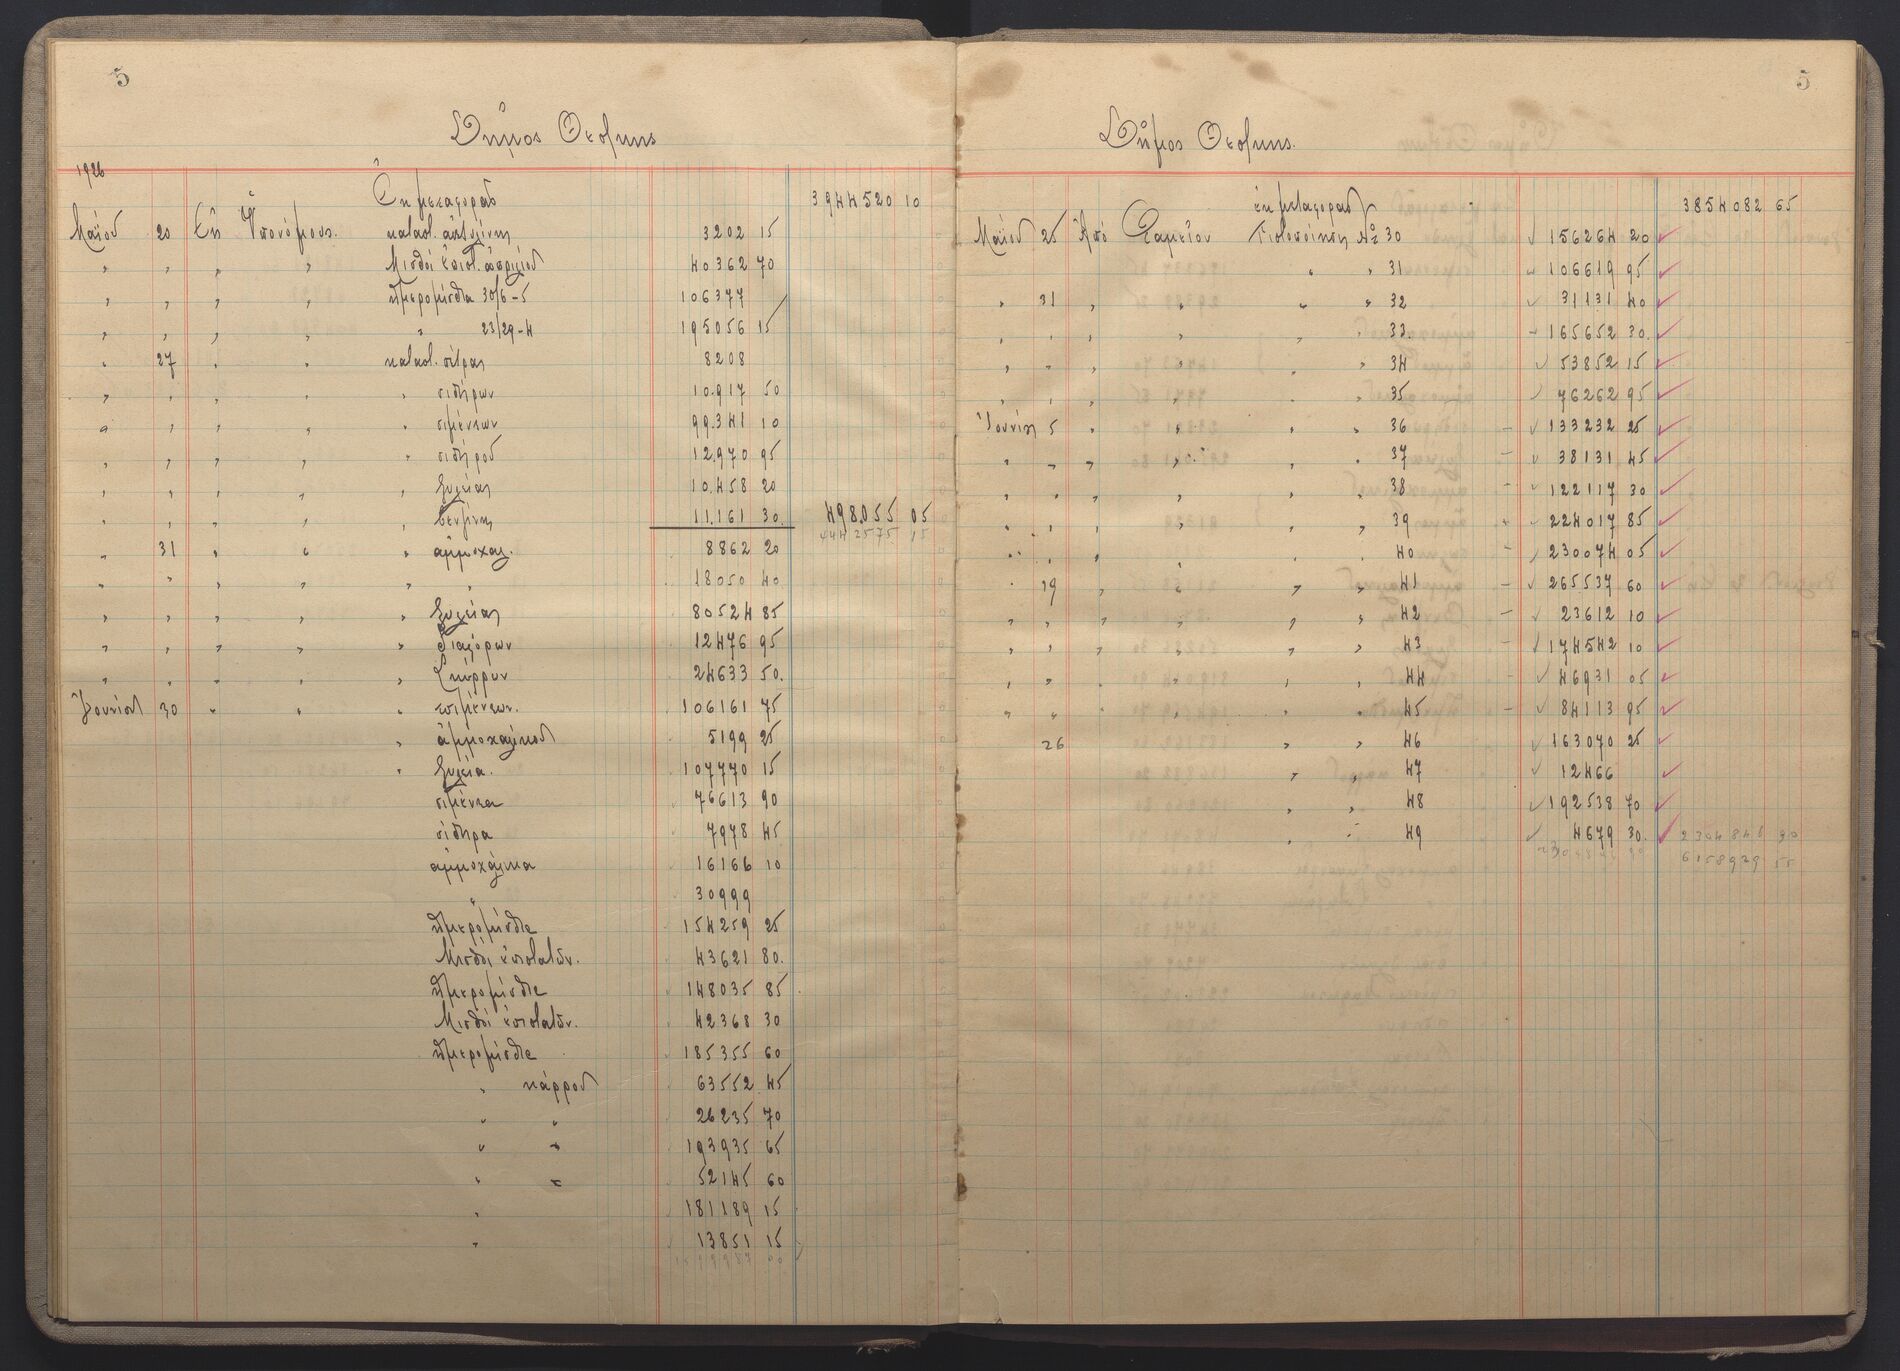 5
Δῆμος Θεσ/κης
1926
Ἐκ μεταφορᾶς 3944520 10
Μαΐου 20 Εἰς Ὑπονόμους. καταστ. 3202 15
" " " " Μισθοί ἐπιστ. ἀπριλίου 40362 70
" " " " ἡμερομίσθια 30/6-5 106377
" " " " " 23/29-4 195056 15
" 27 " " καταστ. πέτρας 8208
" " " " " σιδήρων 10.917 50
" " " " " σιμέντων 99.341 10
" " " " " σιδήρου 12.970 95
" " " " " ξυλείας 10.458 20
" " " " " βενζίνης 11.161 30 498.055 05
4442575 15
" 31 " " " ἀμμοχαλ. 8862 20
" " " " " " 18050 40
" " " " " ξυλείας 80524 85
" " " " " διαφόρων 12476 95
" " " " " Σκύρρων 24633 50
Ἰουνίου 30 " " " σιμέντων. 106161 75
" ἀμμοχαλίκου 5199 25
" ξυλεία. 107770 15
σιμέντα 76613 90
σίδηρα 7978 45
ἀμμοχάλικα 16166 10
" 30999
ἡμερομίσθια 154259 25
Μισθοί ἐπιστατῶν. 43621 80
ἡμερομίσθια 148035 85
Μισθοί ἐπιστατῶν. 42368 30
ἡμερομίσθια 185355 60
" κάρρου 63552 45
" " 26235 70
" " 193935 65
" " 52145 60
" 181189 15
" 13851 15
5
Δῆμος Θεσ/κης.
ἐκ μεταφορᾶς 3854082 65
Μαΐου 25 Ἀπό Ταμεῖον Πιστοποίησις № 30 156264 20
" " 31 106619 95
" 31 " " " " 32 31131 40
" " " " " " 33. 165652 30
" " " " " " 34 53852 15
" " " " " " 35 76262 95
Ἰουνίου 5 " " " " 36 133232 25
" " " " " " 37 38131 45
" " " " " " 38 122117 30
" " " " " " 39 224017 85
" " " " " 40 230074 05
" 19 " " " " 41 265537 60
" " " " " " 42 23612 10
" " " " " " 43 174542 10
" " " " " " 44 46931 05
" " " " " " 45 84113 95
26 " " 46 163070 25
" " 47 12466
" " 48 192538 70
" " 49 4679 30 2304846 90
2304846 90 6158929 55